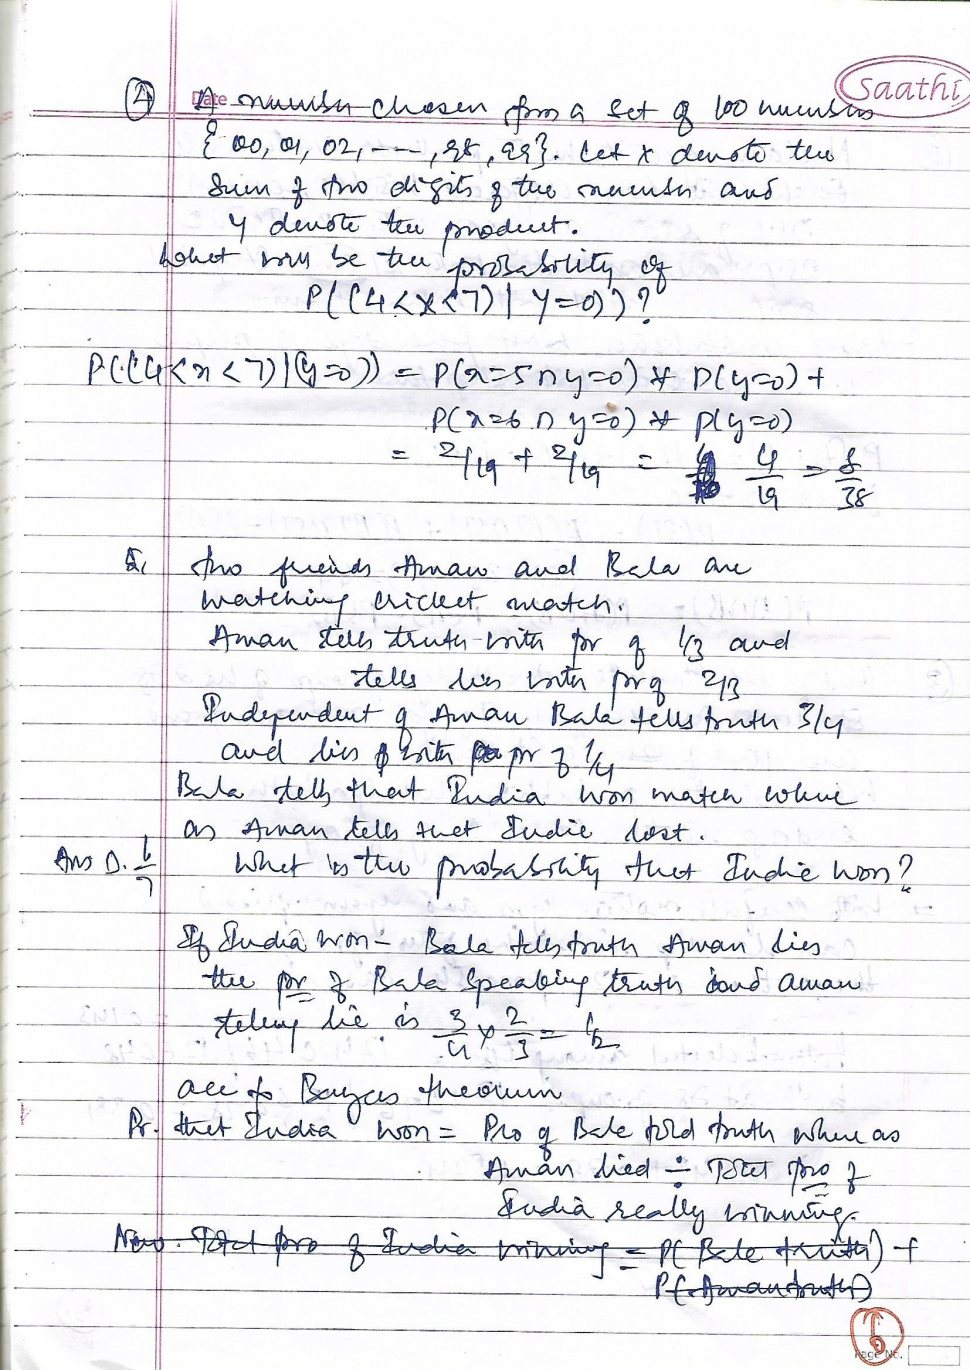 Saathi
Date
④ A number chosen from a set of 100 numbers
{00, 01, 02, ----, 98, 99}. Let x denote the
Sum of two digits of the number and
y denote the product.
What will be the probability of
P((4<x<7) | y=0))?
P((4<x<7)|(y=0)) = P(x=5 ∩ y=0) * P(y=0) +
P(x=6 ∩ y=0) * P(y=0)
= 2/19 + 2/19 = 4/19 = 8/38
5, two friends Aman and Bala are
watching cricket match.
Aman tells truth with pr of 1/3 and
tells lies with pr of 2/3
Independent of Aman Bala tells truth 3/4
and lies with pr of 1/4
Bala tells that India won match where
as Aman tells that India lost.
Ans D. 6/7 What is the probability that India won?
If India won - Bala tells truth Aman lies
the pr of Bala speaking truth and aman
telling lie is 3/4 × 2/3 = 1/2
acc to Bayes theorum
Pr. that India won = Pro of Bala told truth where as
Aman lied ÷ Total pro of
India really winning.
Now Total pro of India winning = P(Bala truth) +
P(Aman truth)
6
Page No.